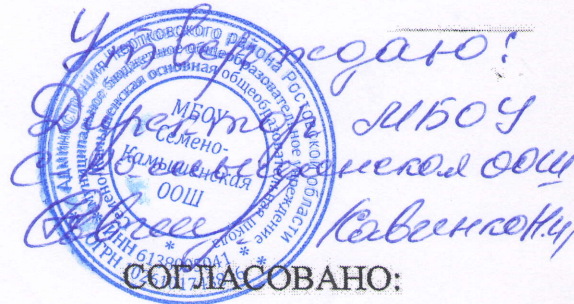 Утверждаю!
Директор МБОУ
ООШ
Савченко Н.И
АДМИНИСТРАЦИЯ ЧЕРТКОВСКОГО РАЙОНА РОСТОВСКОЙ ОБЛАСТИ
муниципальное бюджетное общеобразовательное учреждение
основная общеобразовательная школа
МБОУ
Семено-
Камышенская
ООШ
ИНН
ОГРН
СОГЛАСОВАНО: